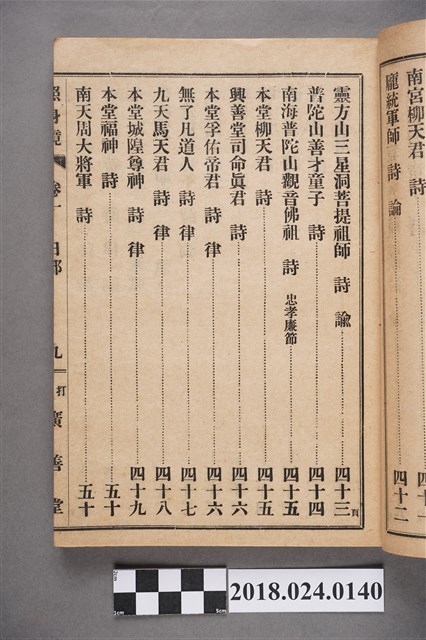 南宮柳天君 詩 四十一
龐統軍師 詩 論 四十二
靈方山三星洞菩提祖師 詩 諭 四十三頁
普陀山善才童子 詩 四十四
南海普陀山觀音佛祖 詩 忠孝廉節 四十五
本堂柳天君 詩 四十五
興善堂司命眞君 詩 四十六
本堂孚佑帝君 詩 律 四十六
無了凡道人 詩 律 四十七
九天馬天君 詩 律 四十八
本堂城隍尊神 詩 律 四十九
本堂福神 詩 五十
南天周大將軍 詩 五十
照身鏡 卷一 目 九 打 廣善堂
2cm
1cm
5cm
2018.024.0140